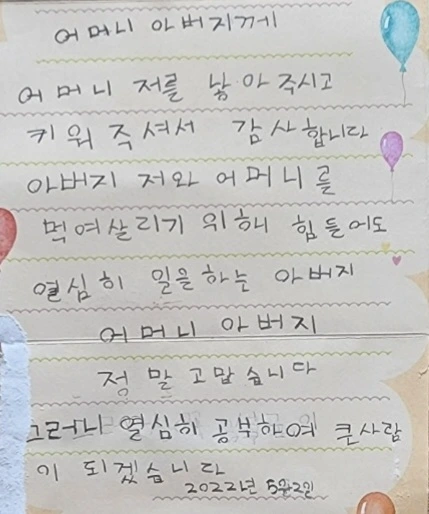 어머니 아버지께
어머니 저를 낳아주시고
키워주셔서 감사합니다
아버지 저와 어머니를
먹여살리기 위해 힘들어도
열심히 일을하는 아버지
어머니 아버지
정말고맙습니다
그러니 열심히 공부하여 큰사람
이 되겠습니다
2022년 5월2일